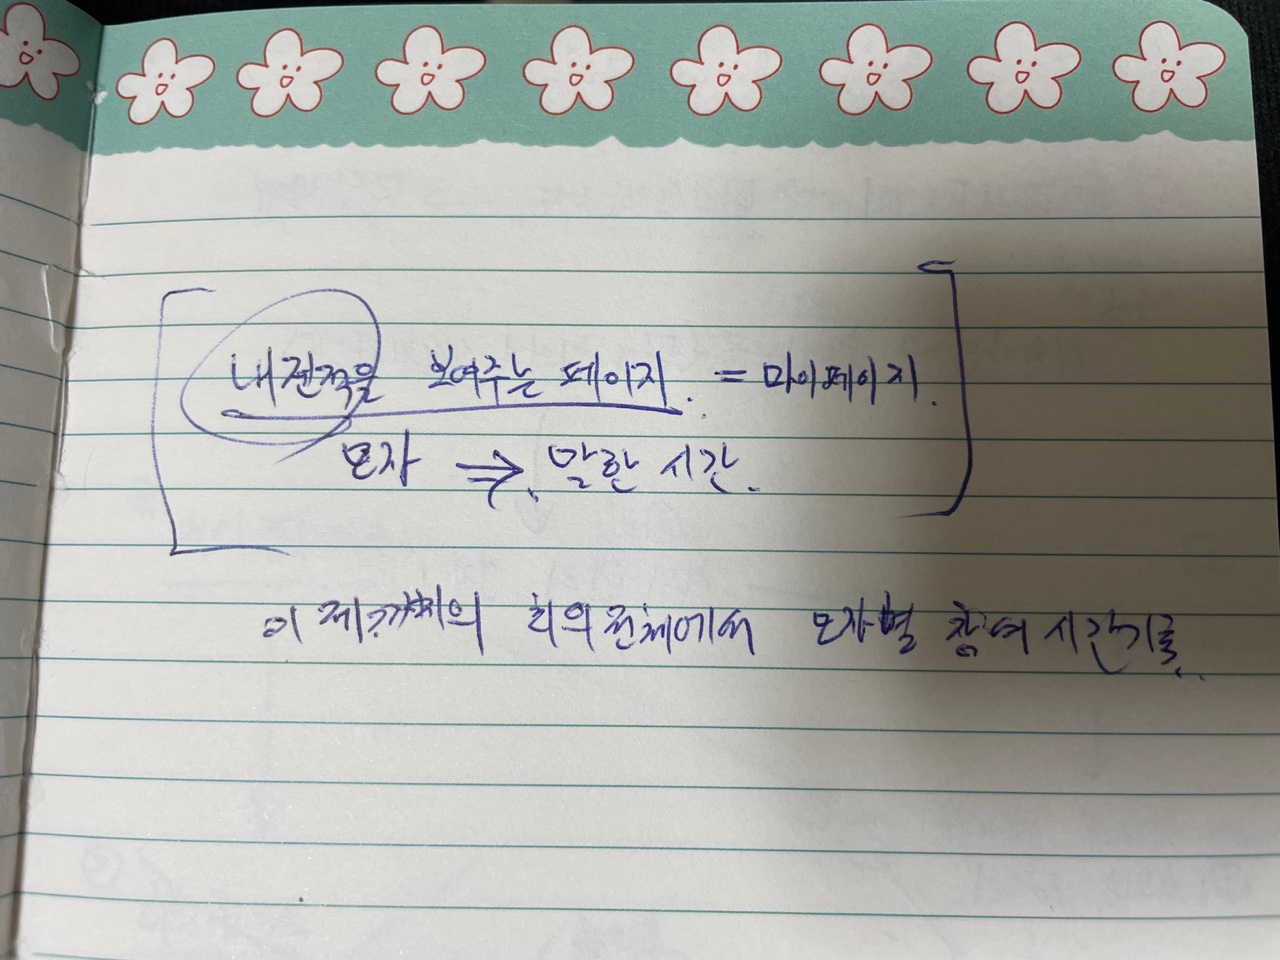 내전적을 보여주는 페이지. = 마이페이지.
모자 ⇒ 말한 시간.
이제까지의 회의 전체에서 모자별 참여 시간기를